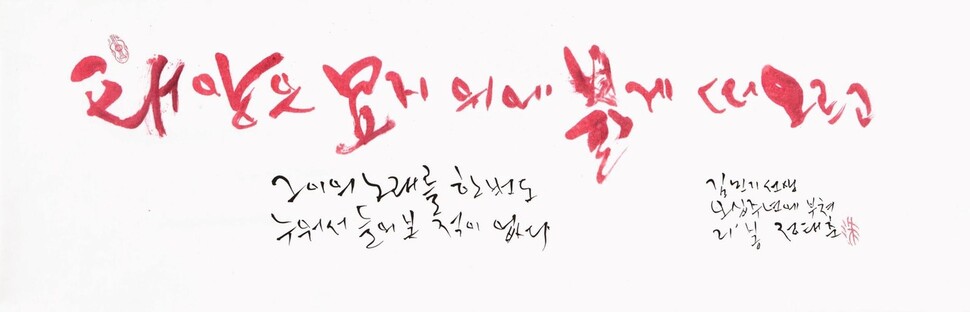 태양은 묘지 위에 붉게 떠오르고
그이의 노래를 한번도
누워서 들어본 적이 없다
김민기 선생
오십주년에 부쳐
정태춘